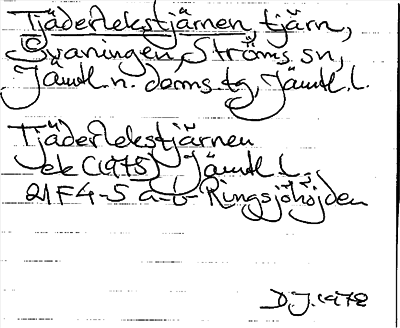 Tjäderlekstjärnen, tjärn,
Svaningen, Ströms sn,
Jämtl. n. doms. tg, Jämtl. l.
Tjäderlekstjärnen
ek (1975) Jämtl. l.,
21F4-5 a-b Ringsjöhöjden
D.J. 1978